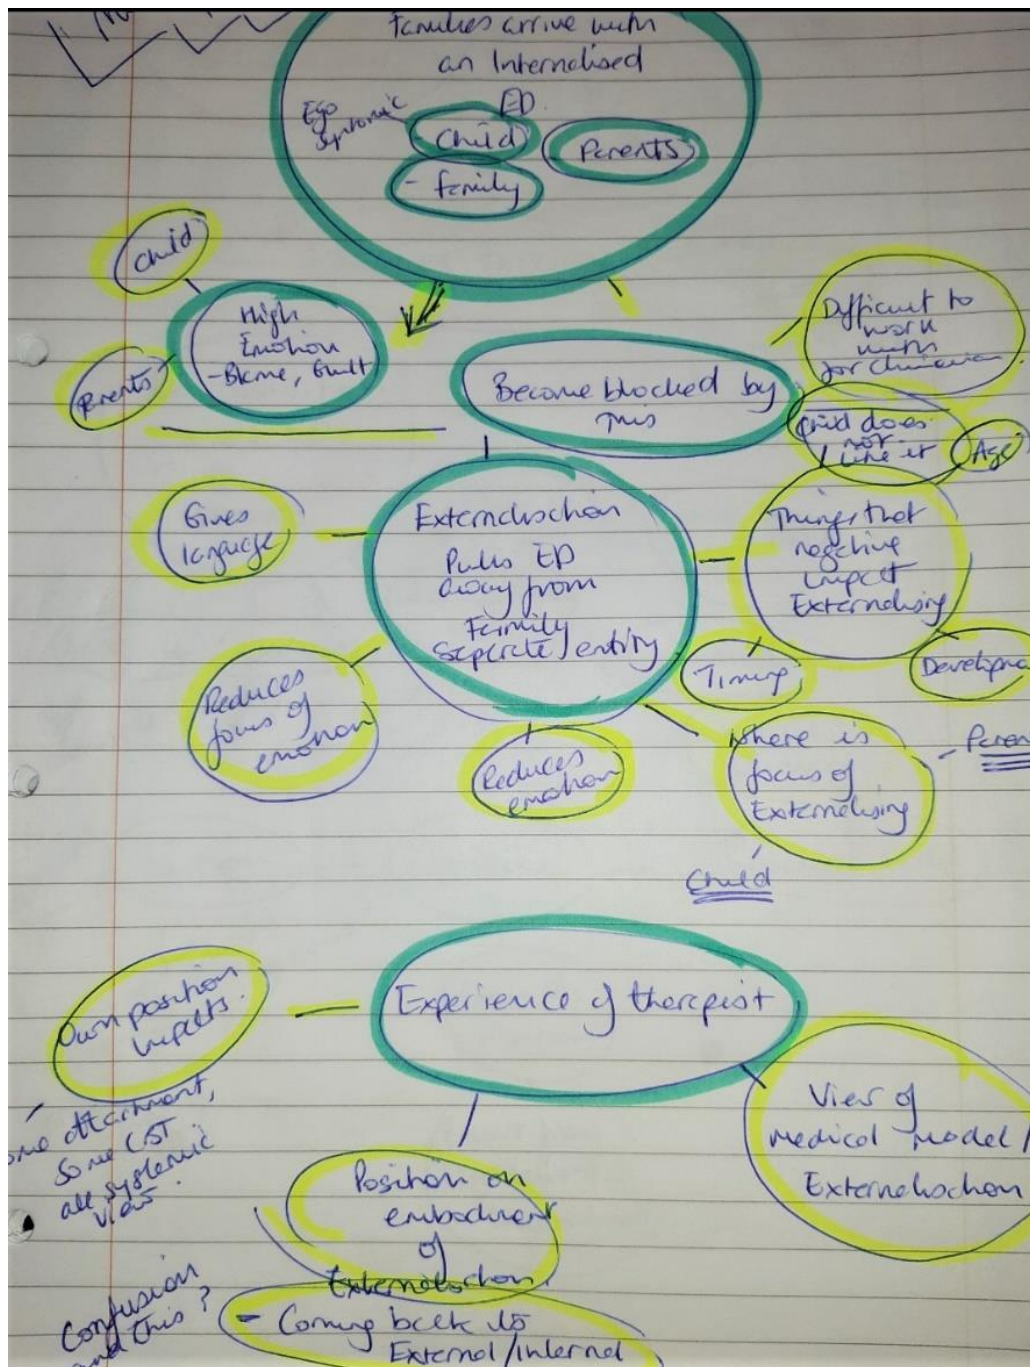 Families arrive with
an Internalised
ED
Ego
Syntonic
Child
- Parents
- Family
Child
High
Emotion
- Blame, Guilt
Parents
Become blocked by
this
Difficult to
work
with
for clinician
Child does
not
like it
Age
Gives
language
Externalisation
Pulls ED
away from
Family
Seperate entity
Things that
negative
impact
Externalising
Timing
Developme
Reduces
focus of
emotion
Reduces
emotion
Where is
focus of
Externalising
- Paren
Child
Own position
impacts.
Experience of therapist
attachment,
some CBT
all systemic
view.
View of
medical model/
Externalisation
Position on
embodiment
of
Externalisation.
Confusion
this?
- Coming back to
External/Internal